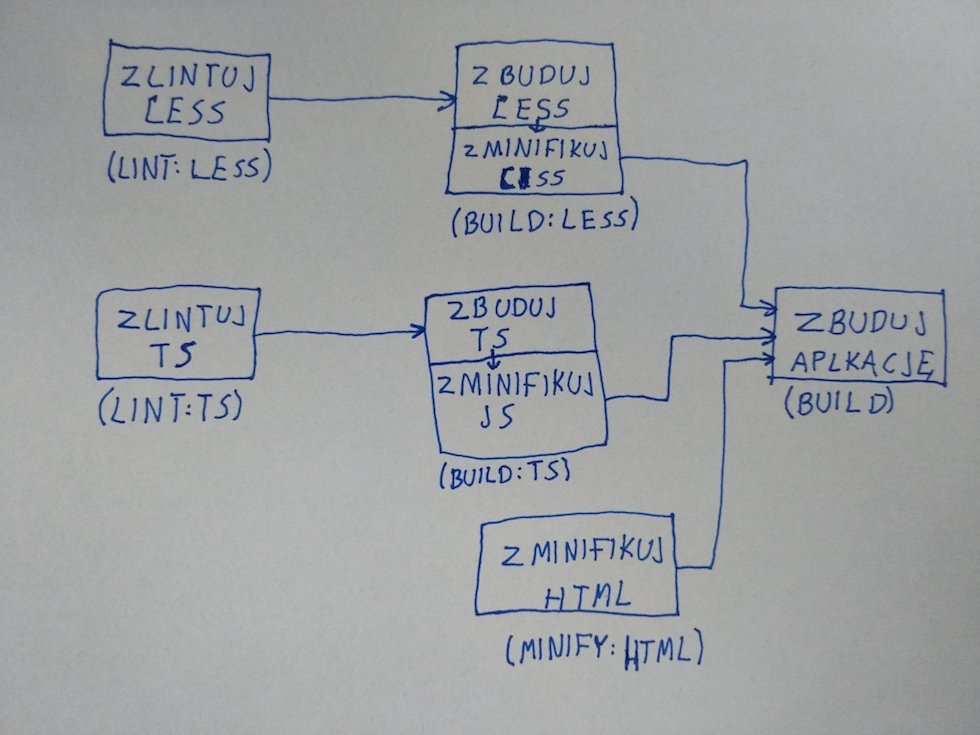 ZLINTUJ
LESS
(LINT: LESS)
ZBUDUJ
LESS
ZMINIFIKUJ
CSS
(BUILD:LESS)
ZLINTUJ
TS
(LINT:TS)
ZBUDUJ
TS
ZMINIFIKUJ
JS
(BUILD:TS)
ZMINIFIKUJ
HTML
(MINIFY: HTML)
ZBUDUJ
APLKACJĘ
(BUILD)